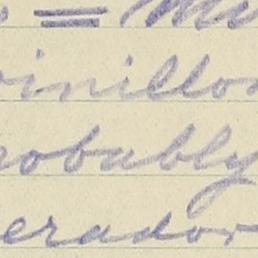 = Mu
inillos
robably
erador